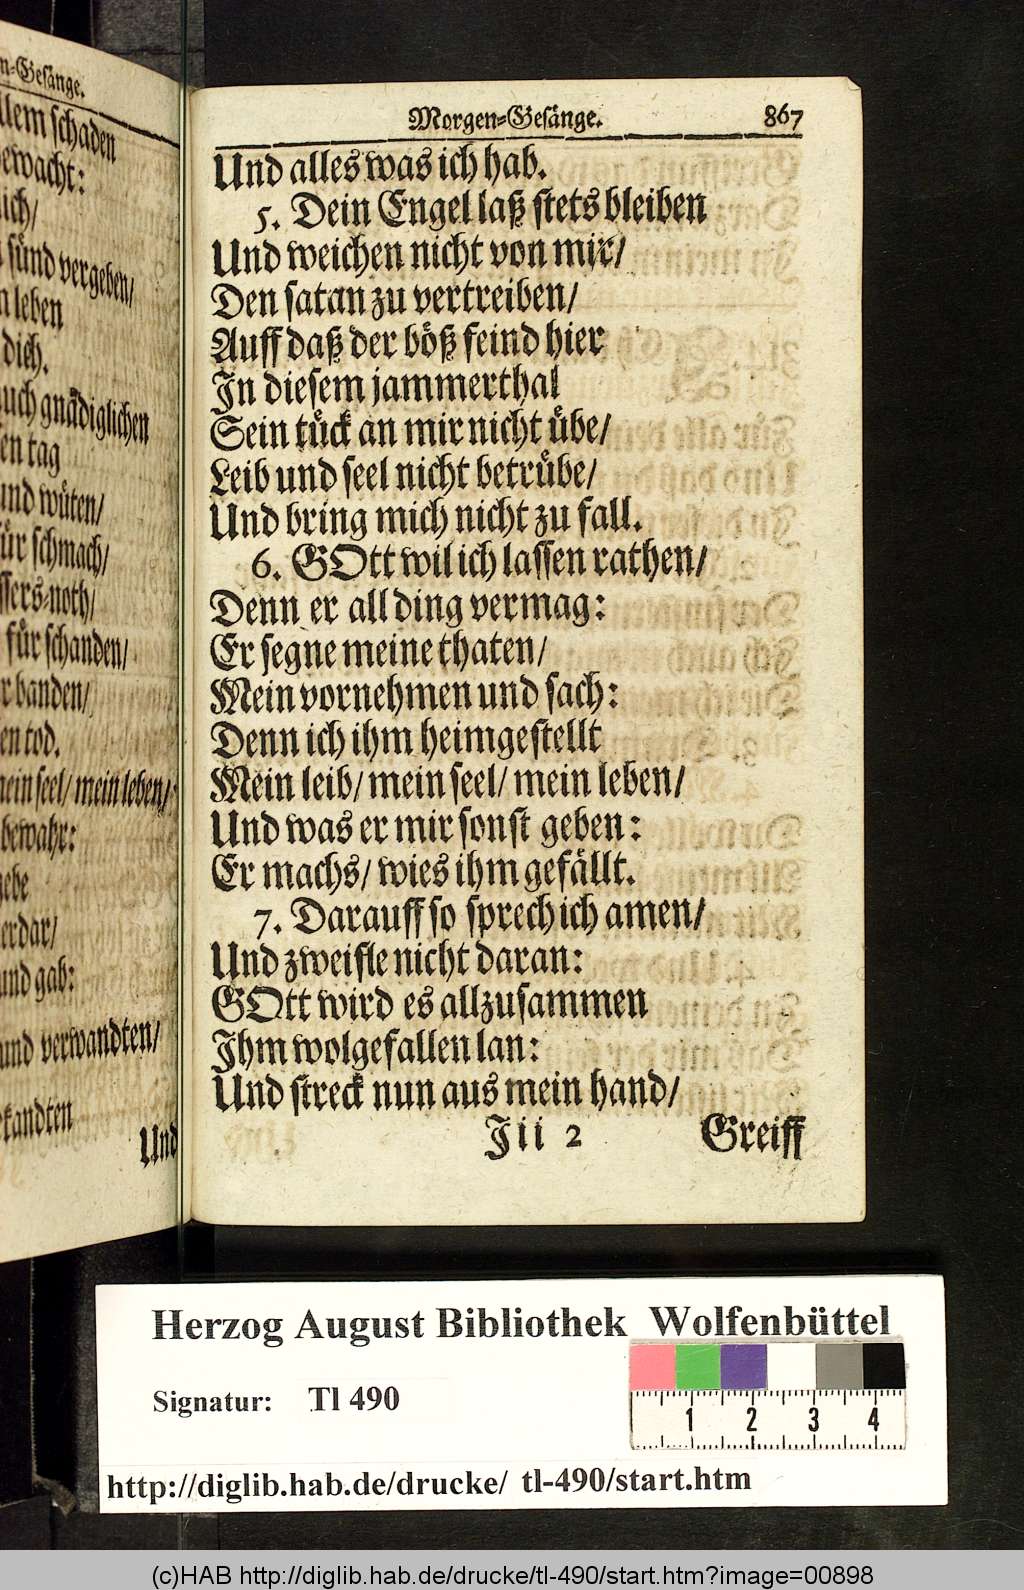 n-Gesänge.
llem schaden
bewacht:
lich/
sünd vergeben/
n leben
dich.
uch gnädiglichen
en tag
und wüten/
für schmach/
ssers-noth/
für schanden/
r banden/
en tod.
mein seel/ mein leben/
bewahr:
gebe
erdar/
und gab:
und verwandten/
kandten
Und
Morgen-Gesänge. 867
Und alles was ich hab.
5. Dein Engel laß stets bleiben
Und weichen nicht von mir/
Den satan zu vertreiben/
Auff daß der böß feind hier
In diesem jammerthal
Sein tück an mir nicht übe/
Leib und seel nicht betrübe/
Und bring mich nicht zu fall.
6. GOtt wil ich lassen rathen/
Denn er all ding vermag:
Er segne meine thaten/
Mein vornehmen und sach:
Denn ich ihm heimgestellt
Mein leib/ mein seel/ mein leben/
Und was er mir sonst geben:
Er machs/ wies ihm gefällt.
7. Darauff so sprech ich amen/
Und zweifle nicht daran:
GOtt wird es allzusammen
Ihm wolgefallen lan:
Und streck nun aus mein hand/
Jii 2 Greiff
Herzog August Bibliothek Wolfenbüttel
Signatur: Tl 490
1 2 3 4
http://diglib.hab.de/drucke/ tl-490/start.htm
(c)HAB http://diglib.hab.de/drucke/tl-490/start.htm?image=00898